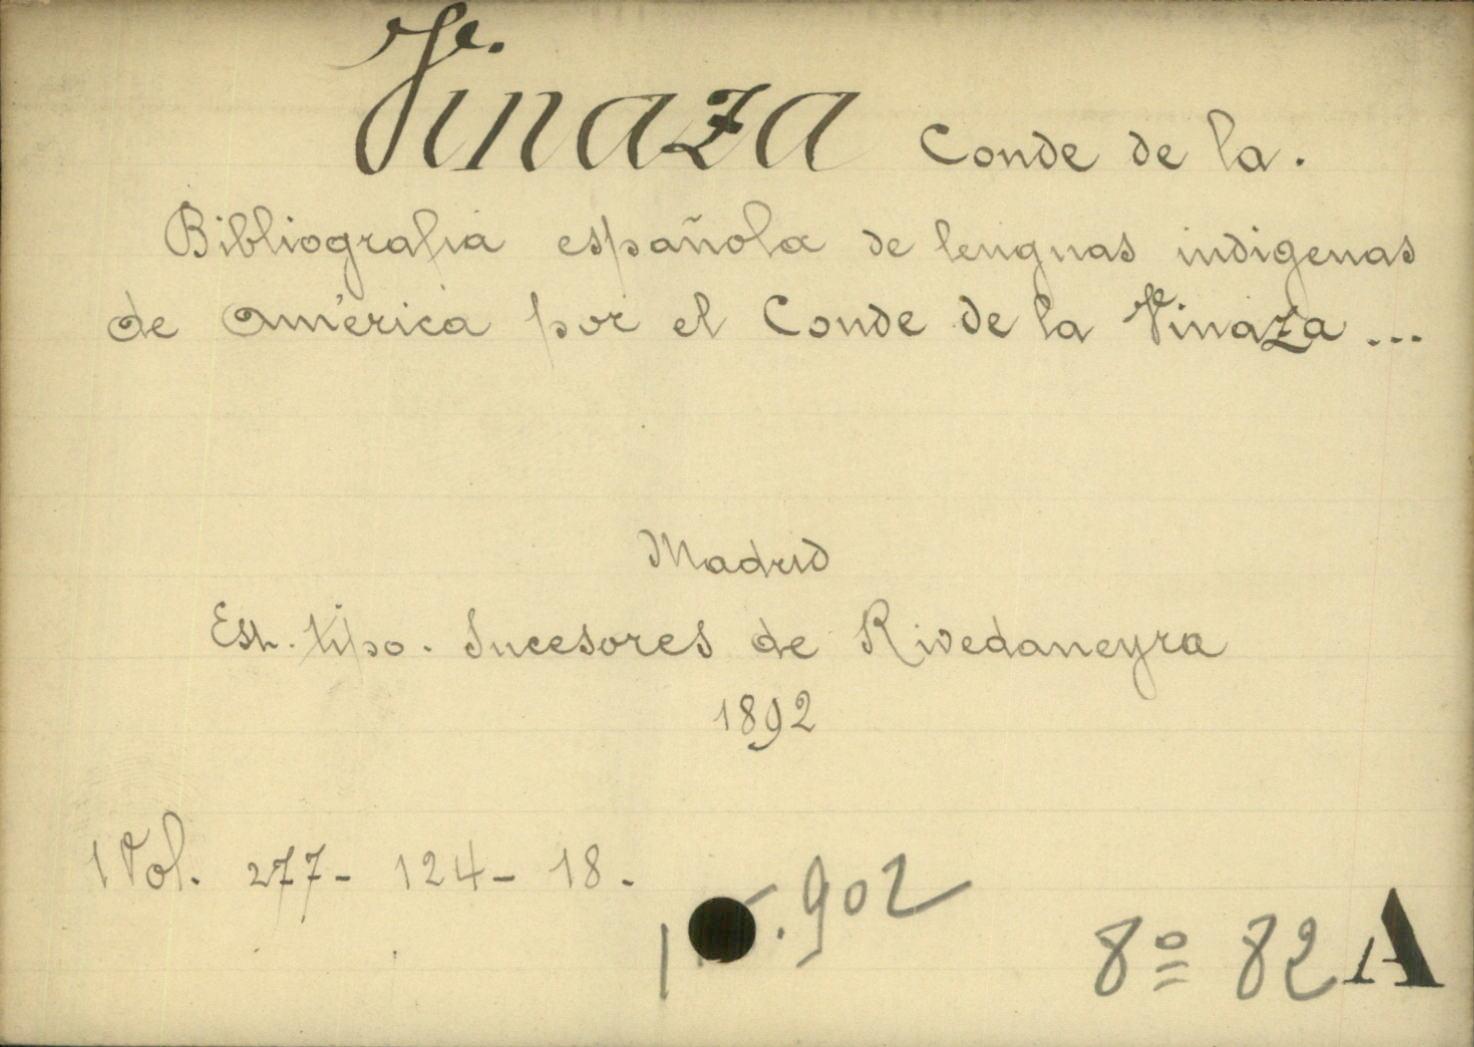 Vinaza Conde de la.
Bibliografia española de lenguas indigenas
de América por el Conde de la Vinaza ...
Madrid
Est. tipo. Sucesores de Rivedaneyra
1892
1 Vol. 277- 124- 18.
.902
8º 82 A